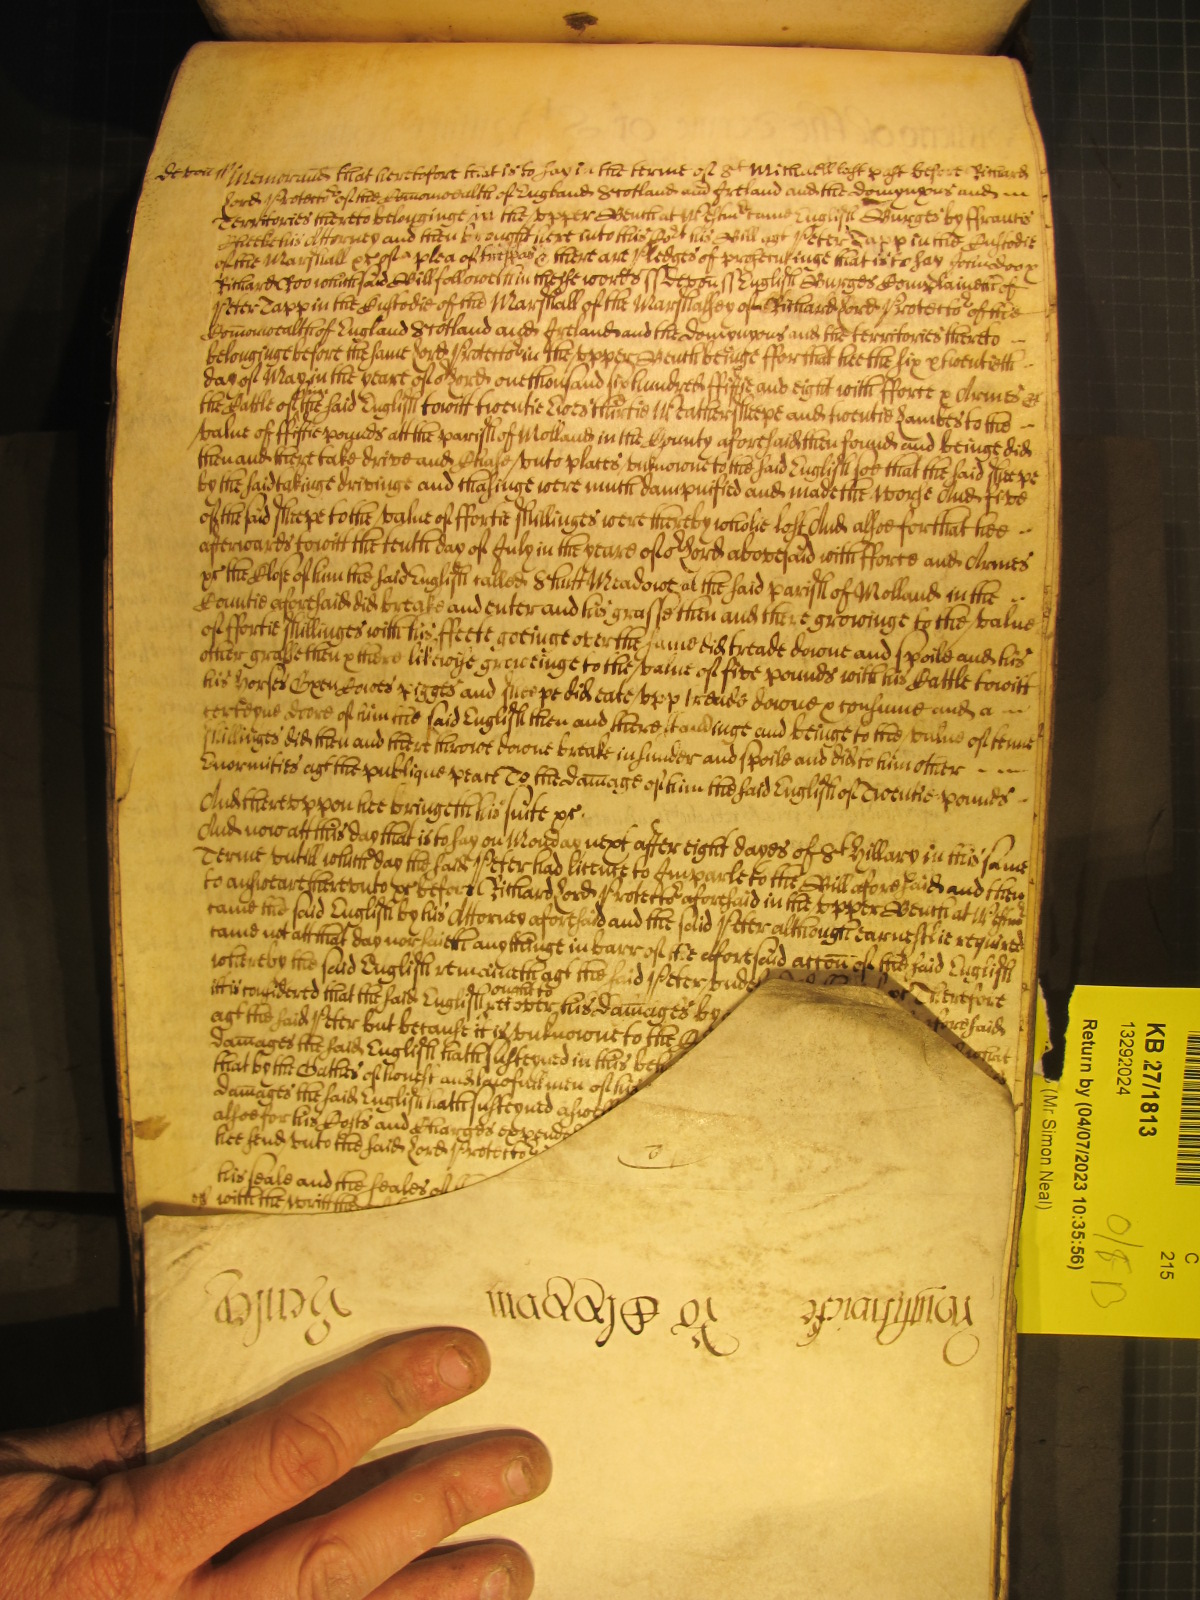 Devon ss Memorand that heretofore that is to say in the terme of St Michaell last past before Richard
Lord Protector of the Comonwealth of England Scotland and Ireland and the domynyons and
Territories thereto belonginge in the vpper Bench at Westmr came English Burges by Francis
his Attorney and then brought here into this Cort his Bill agt Peter Tapp in the Custodie
of the Marshall &c of a plea of trespas & there are Pledges of prosecutinge that is to say John doo &
Richard Roo which said Bill followeth in these words ss Devon ss English Burges Complaineth of
Peter Tapp in the Custodie of the Marshall of the Marshalsey of Richard Lord Protector of the
Comonwealth of England Scotland and Ireland and the Domynyons and the territories thereto
belonginge before the same Lord Protector in the vpper Bench beinge ffor that hee the six & twentieth
day of May in the yeare of or Lord one thousand six hundred fiftie and eight with fforce & Armes &c
the Cattle of the said English towitt twentie Ewes thirtie Weather sheepe and twentie Lambes to the
value of ffiftie pounds att the parish of Molland in the County aforesaid then found and beinge did
then and there take drive and Chase vnto places vnknowne to the said English soe that the said sheepe
by the said takinge drivinge and chasinge were much dampnified and made the worse And five
of the said sheepe to the value of ffortie shillinges were thereby wholie lost And alsoe for that hee
afterwards towitt the tenth day of July in the yeare of or Lord abovesaid with fforce and Armes
&c the Close of him the said English called Shutt Meadowe at the said parish of Molland in the
Countie aforesaid did breake and enter and his grasse then and there growinge to the value
of ffortie shillinges with his ffeete goeinge over the same did treade downe and spoile and his
other grasse then & there likewise groweinge to the value of five pounds with his Cattle towitt
his horses Oxen Cowes piggs and sheepe did eate vpp treade downe & consume and a
certeyne doore of him the said English then and there standinge and beinge to the value of tenne
shillinges did then and there throwe downe breake in sunder and spoile and did to him other
Enormities agt the publique peace To the damage of him the said English of Twentie pounds
And therevppon hee bringeth his suite &c.
And now att this day that is to say on Monday next after eight dayes of St Hillary in this same
Terme vntill which day the said Peter had licence to Imparle to the Bill aforesaid and then
to answeare therevnto &c before Richard Lord Protector aforesaid in the vpper Bench at Westmr
came the said English by his Attorney aforesaid and the said Peter although earnestlie required
came not att that day nor saieth any thinge in barr of the aforesaid accon of the said English
whereby the said English remaineth agt the said Peter Therefore
it is considered that the said English ought to recover his damages by aforesaid
agt the said Peter but because it is vnknowne to the what
damages the said English hath susteyned in this
that by the Oathes of honest and lawfull men of his
damages the said English hath susteyned
alsoe for his Costs and Charges
hee send vnto the said Lord Protector
his seale and the seales of
with the writt
KB 27/1813
13292024
Return by (04/07/2023 10:35:56)
(Mr Simon Neal)
C
215